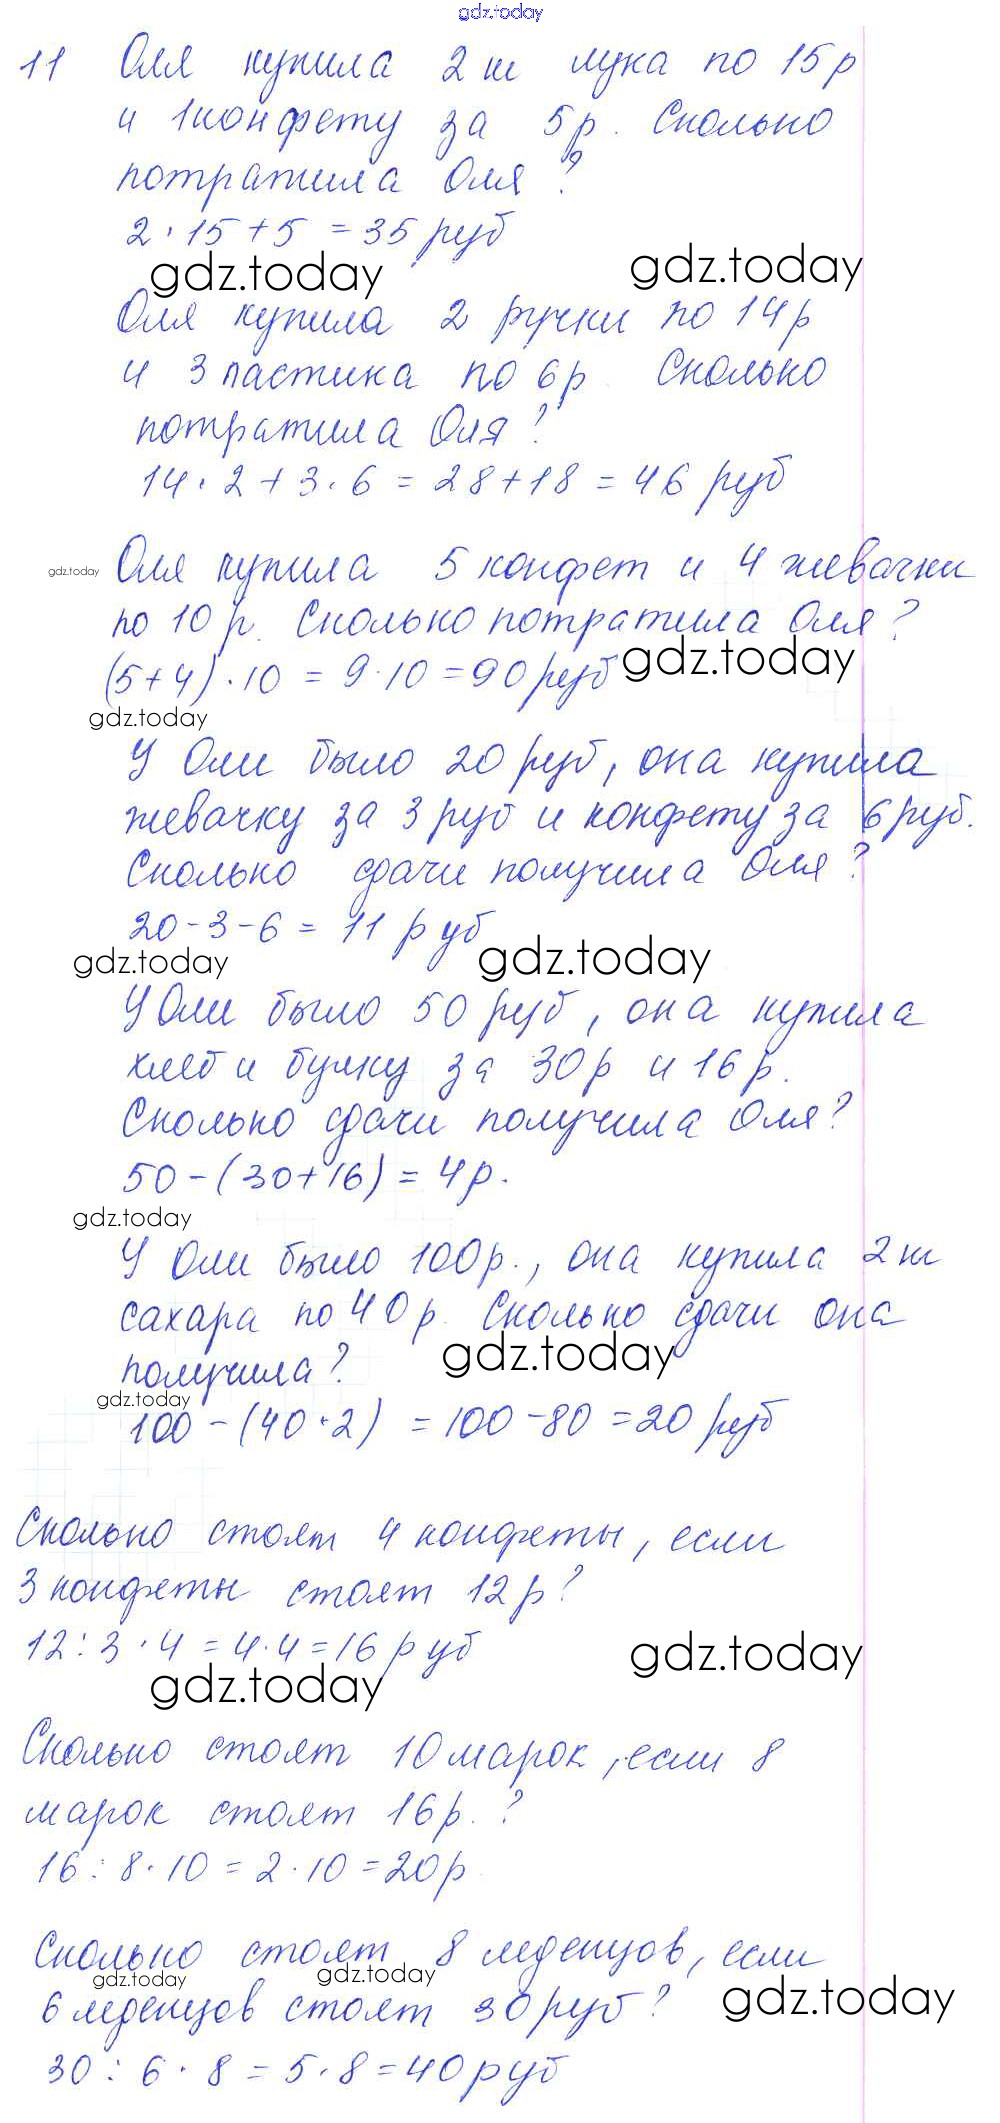 gdz.today
11 Оля купила 2 ш лука по 15 р
и 1 конфету за 5 р. Сколько
потратила Оля?
2 · 15 + 5 = 35 руб
gdz.today gdz.today
Оля купила 2 ручки по 14 р
и 3 ластика по 6 р. Сколько
потратила Оля?
14 · 2 + 3 · 6 = 28 + 18 = 46 руб
gdz.today Оля купила 5 конфет и 4 жевачки
по 10 р. Сколько потратила Оля?
gdz.today
(5+4) · 10 = 9 · 10 = 90 руб
gdz.today
У Оли было 20 руб, она купила
жевачку за 3 руб и конфету за 6 руб.
Сколько сдачи получила Оля?
20 - 3 - 6 = 11 руб
gdz.today gdz.today
У Оли было 50 руб, она купила
хлеб и булку за 30 р и 16 р.
Сколько сдачи получила Оля?
50 - (30 + 16) = 4 р.
gdz.today
У Оли было 100 р., она купила 2 ш
сахара по 40 р. Сколько сдачи она
gdz.today
получила?
gdz.today
100 - (40 · 2) = 100 - 80 = 20 руб
Сколько стоят 4 конфеты, если
3 конфеты стоят 12 р?
12 : 3 · 4 = 4 · 4 = 16 руб
gdz.today gdz.today
Сколько стоят 10 марок, если 8
марок стоят 16 р.?
16 : 8 · 10 = 2 · 10 = 20 р
Сколько стоят 8 леденцов, если
gdz.today gdz.today gdz.today
6 леденцов стоят 30 руб?
30 : 6 · 8 = 5 · 8 = 40 руб